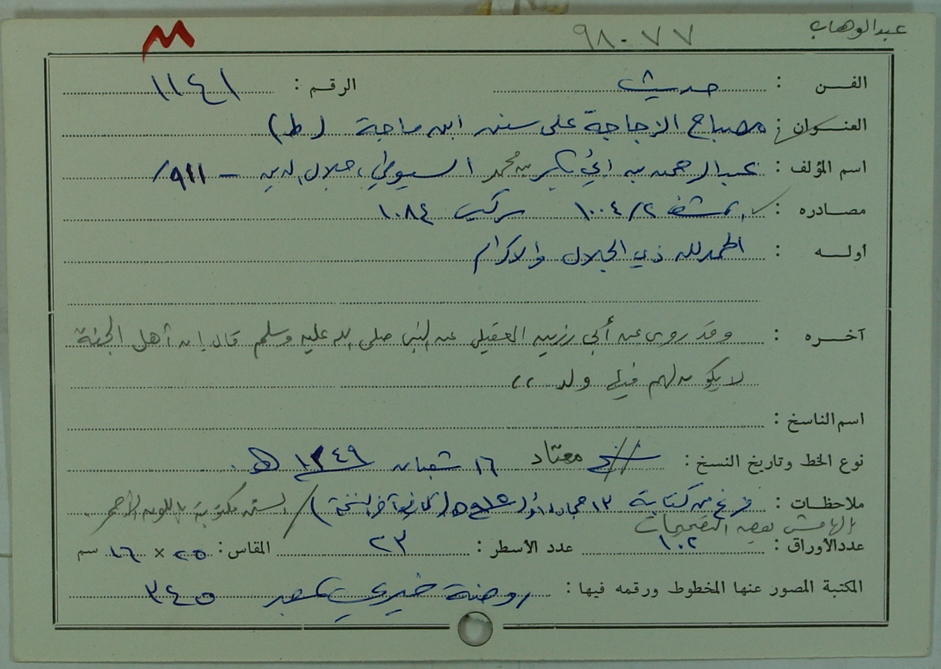 عبدالوهاب
٩٨٠٧٧
M
الفن : حديث الرقم : ١١٤١
العنوان : مصباح الزجاجة على سنن ابن ماجة (ط)
اسم المؤلف : عبدالرحمن بن أبي بكر بن محمد السيوطي، جلال الدين - ٩١١/
مصادره : كشف ١٠٠٤/٢ سركيس ١٠٨٤
أولـه : الحمدلله ذي الجلال والاكرام
آخره : وقد روى عن أبي رزين العقيلي عن النبي صلى الله عليه وسلم قال إن أهل الجنة
لا يكون لهم فيها ولد ،،
اسم الناسخ :
نوع الخط وتاريخ النسخ : معتاد ١٦ شعبان ١٣٤٩ هـ .
ملاحظات : فرغ من كتابة ١٣ جماد (كما في آخر النسخة) / السنن مكتوبة باللون الأحمر .
الهامش بعض التصحيحات
عددالأوراق : ١٠٢ عدد الأسطر : ٢٣ المقاس : ٢٥ × ١٦ سم
المكتبة المصور عنها المخطوط ورقمه فيها : روضة خيري بمصر ٣٤٥